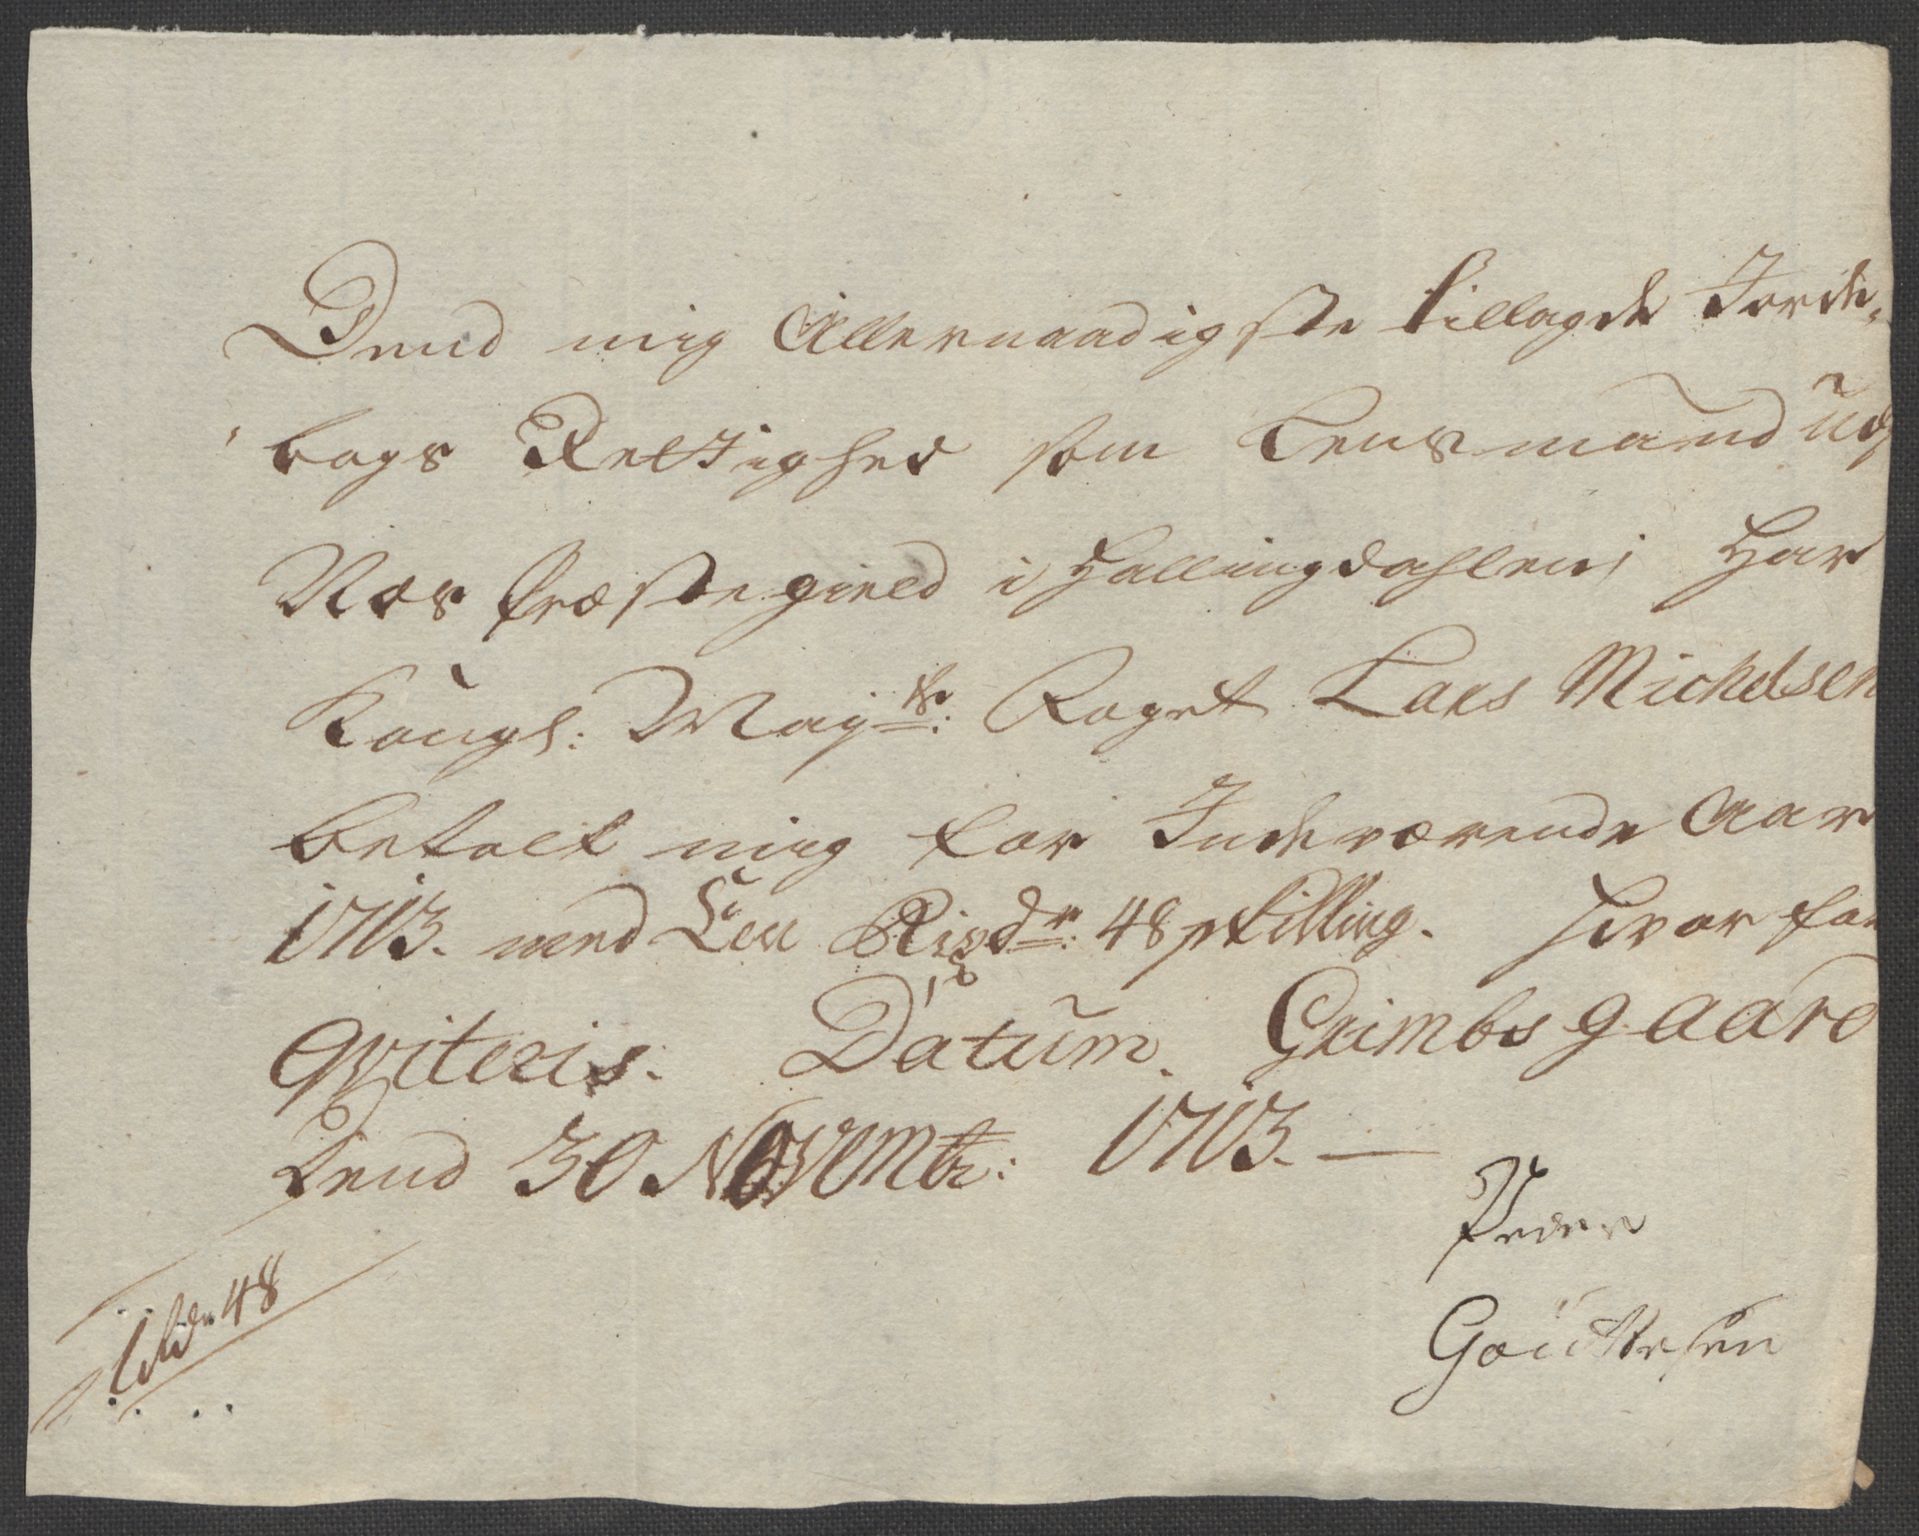 Dend mig Allernaadigste tillagde Jorde-
bogs Rettighed som Lensmand udj
Næs Præstegield i Hallingdahlen, Har
Kongl: Mayts: Foget Lars Michelsen
betalt mig for Indeværende Aar
1713. med Een Rixdr: 48 skilling. Hvor for
Qviteris. Datum. Grimbsgaard
Dend 30 Novembr: 1713.
Peder
48